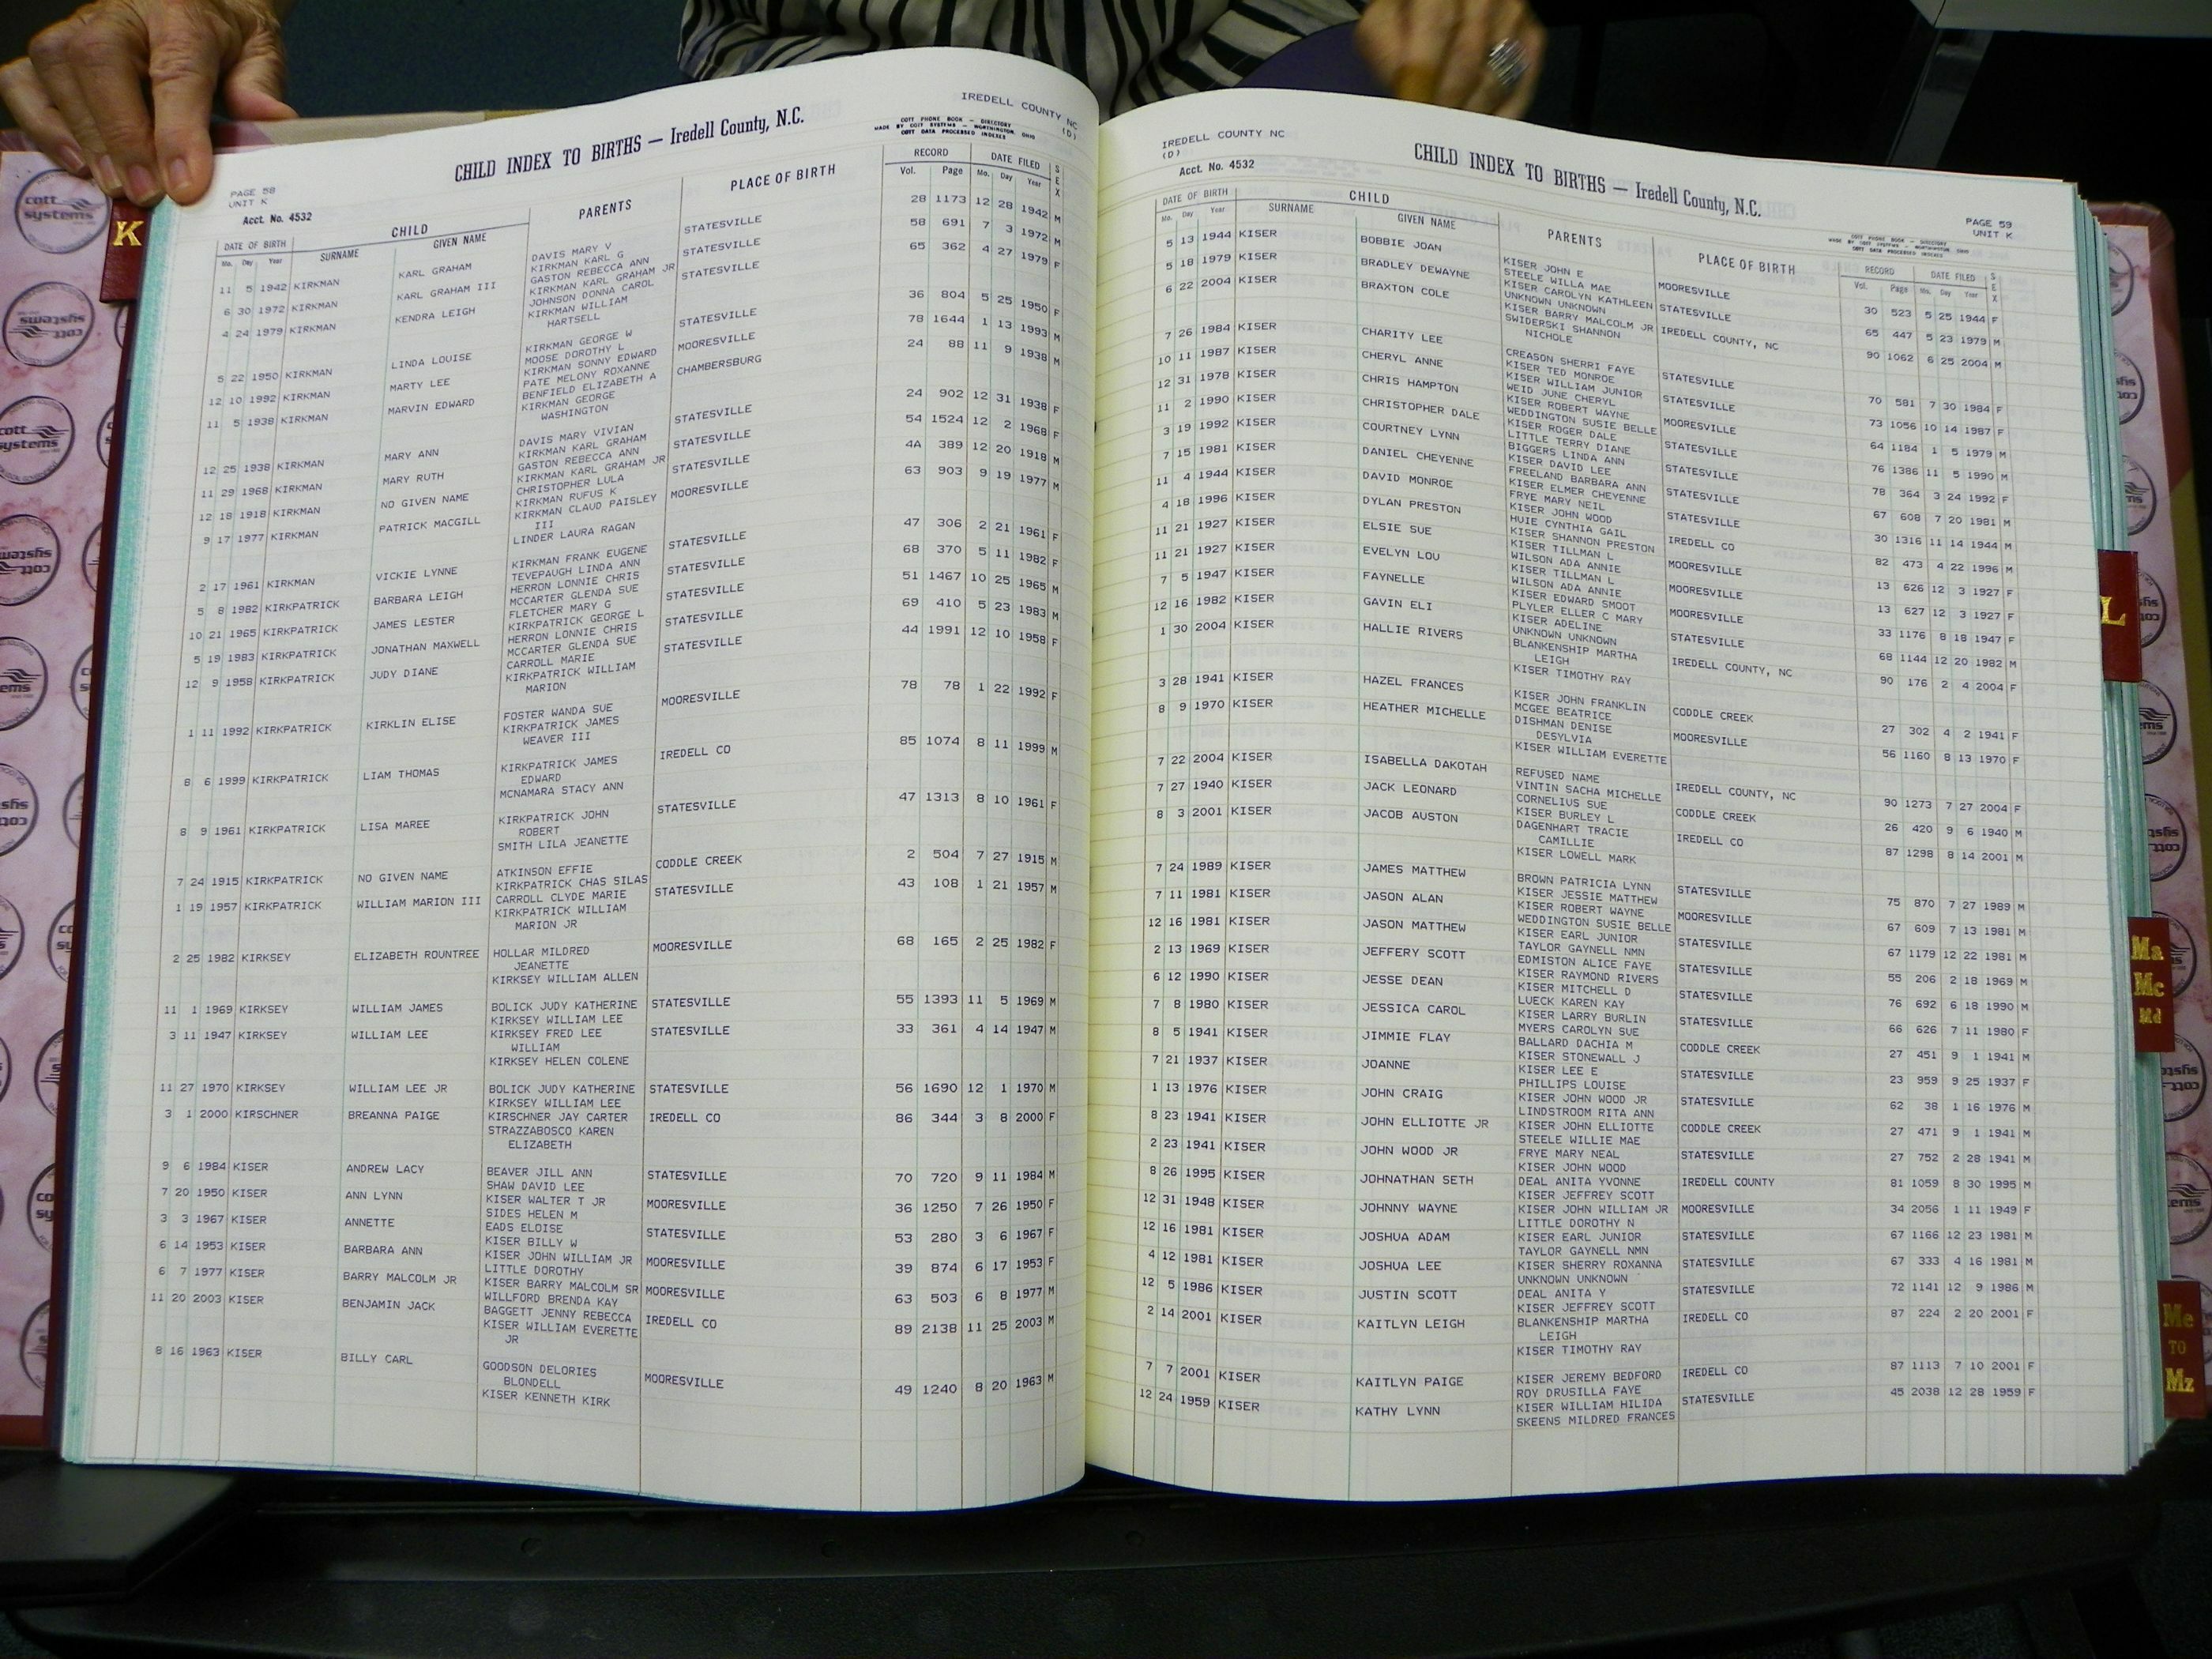 IREDELL COUNTY NC
(D)
CHILD INDEX TO BIRTHS — Iredell County, N.C.
COTT PHONE BOOK — DIRECTORY
MADE BY COTT SYSTEMS — WORTHINGTON, OHIO
COTT DATA PROCESSED INDEXES
PAGE 58
UNIT K
Acct. No. 4532
DATE OF BIRTH CHILD PARENTS PLACE OF BIRTH RECORD DATE FILED SEX
Mo. Day Year SURNAME GIVEN NAME Vol. Page Mo. Day Year
11 5 1942 KIRKMAN KARL GRAHAM DAVIS MARY V STATESVILLE 28 1173 12 28 1942 M
KIRKMAN KARL G
6 30 1972 KIRKMAN KARL GRAHAM III GASTON REBECCA ANN STATESVILLE 58 691 7 3 1972 M
KIRKMAN KARL GRAHAM JR
4 24 1979 KIRKMAN KENDRA LEIGH JOHNSON DONNA CAROL STATESVILLE 65 362 4 27 1979 F
KIRKMAN WILLIAM
HARTSELL
5 22 1950 KIRKMAN LINDA LOUISE KIRKMAN GEORGE W STATESVILLE 36 804 5 25 1950 F
MOOSE DOROTHY L
12 10 1992 KIRKMAN MARTY LEE KIRKMAN SONNY EDWARD MOORESVILLE 78 1644 1 13 1993 M
PATE MELONY ROXANNE
11 5 1938 KIRKMAN MARVIN EDWARD BENFIELD ELIZABETH A CHAMBERSBURG 24 88 11 9 1938 M
KIRKMAN GEORGE
WASHINGTON
12 25 1938 KIRKMAN MARY ANN DAVIS MARY VIVIAN STATESVILLE 24 902 12 31 1938 F
KIRKMAN KARL GRAHAM
11 29 1968 KIRKMAN MARY RUTH GASTON REBECCA ANN STATESVILLE 54 1524 12 2 1968 F
KIRKMAN KARL GRAHAM JR
12 18 1918 KIRKMAN NO GIVEN NAME CHRISTOPHER LULA STATESVILLE 4A 389 12 20 1918 M
KIRKMAN RUFUS K
9 17 1977 KIRKMAN PATRICK MACGILL KIRKMAN CLAUD PAISLEY MOORESVILLE 63 903 9 19 1977 M
III
LINDER LAURA RAGAN
2 17 1961 KIRKMAN VICKIE LYNNE KIRKMAN FRANK EUGENE STATESVILLE 47 306 2 21 1961 F
TEVEPAUGH LINDA ANN
5 8 1982 KIRKPATRICK BARBARA LEIGH HERRON LONNIE CHRIS STATESVILLE 68 370 5 11 1982 F
MCCARTER GLENDA SUE
10 21 1965 KIRKPATRICK JAMES LESTER FLETCHER MARY G STATESVILLE 51 1467 10 25 1965 M
KIRKPATRICK GEORGE L
5 19 1983 KIRKPATRICK JONATHAN MAXWELL HERRON LONNIE CHRIS STATESVILLE 69 410 5 23 1983 M
MCCARTER GLENDA SUE
12 9 1958 KIRKPATRICK JUDY DIANE CARROLL MARIE STATESVILLE 44 1991 12 10 1958 F
KIRKPATRICK WILLIAM
MARION
1 11 1992 KIRKPATRICK KIRKLIN ELISE FOSTER WANDA SUE MOORESVILLE 78 78 1 22 1992 F
KIRKPATRICK JAMES
WEAVER III
8 6 1999 KIRKPATRICK LIAM THOMAS KIRKPATRICK JAMES IREDELL CO 85 1074 8 11 1999 M
EDWARD
MCNAMARA STACY ANN
8 9 1961 KIRKPATRICK LISA MAREE KIRKPATRICK JOHN STATESVILLE 47 1313 8 10 1961 F
ROBERT
SMITH LILA JEANETTE
7 24 1915 KIRKPATRICK NO GIVEN NAME ATKINSON EFFIE CODDLE CREEK 2 504 7 27 1915 M
KIRKPATRICK CHAS SILAS
1 19 1957 KIRKPATRICK WILLIAM MARION III CARROLL CLYDE MARIE STATESVILLE 43 108 1 21 1957 M
KIRKPATRICK WILLIAM
MARION JR
2 25 1982 KIRKSEY ELIZABETH ROUNTREE HOLLAR MILDRED MOORESVILLE 68 165 2 25 1982 F
JEANETTE
KIRKSEY WILLIAM ALLEN
11 1 1969 KIRKSEY WILLIAM JAMES BOLICK JUDY KATHERINE STATESVILLE 55 1393 11 5 1969 M
KIRKSEY WILLIAM LEE
3 11 1947 KIRKSEY WILLIAM LEE KIRKSEY FRED LEE STATESVILLE 33 361 4 14 1947 M
WILLIAM
KIRKSEY HELEN COLENE
11 27 1970 KIRKSEY WILLIAM LEE JR BOLICK JUDY KATHERINE STATESVILLE 56 1690 12 1 1970 M
KIRKSEY WILLIAM LEE
3 1 2000 KIRSCHNER BREANNA PAIGE KIRSCHNER JAY CARTER IREDELL CO 86 344 3 8 2000 F
STRAZZABOSCO KAREN
ELIZABETH
9 6 1984 KISER ANDREW LACY BEAVER JILL ANN STATESVILLE 70 720 9 11 1984 M
SHAW DAVID LEE
7 20 1950 KISER ANN LYNN KISER WALTER T JR MOORESVILLE 36 1250 7 26 1950 F
SIDES HELEN M
3 3 1967 KISER ANNETTE EADS ELOISE STATESVILLE 53 280 3 6 1967 F
KISER BILLY W
6 14 1953 KISER BARBARA ANN KISER JOHN WILLIAM JR MOORESVILLE 39 874 6 17 1953 F
LITTLE DOROTHY
6 7 1977 KISER BARRY MALCOLM JR KISER BARRY MALCOLM SR MOORESVILLE 63 503 6 8 1977 M
WILLFORD BRENDA KAY
11 20 2003 KISER BENJAMIN JACK BAGGETT JENNY REBECCA IREDELL CO 89 2138 11 25 2003 M
KISER WILLIAM EVERETTE
JR
8 16 1963 KISER BILLY CARL GOODSON DELORIES MOORESVILLE 49 1240 8 20 1963 M
BLONDELL
KISER KENNETH KIRK
IREDELL COUNTY NC
(D)
Acct. No. 4532
CHILD INDEX TO BIRTHS — Iredell County, N.C.
PAGE 59
UNIT K
COTT PHONE BOOK — DIRECTORY
MADE BY COTT SYSTEMS — WORTHINGTON, OHIO
COTT DATA PROCESSED INDEXES
DATE OF BIRTH CHILD PARENTS PLACE OF BIRTH RECORD DATE FILED SEX
Mo. Day Year SURNAME GIVEN NAME Vol. Page Mo. Day Year
5 13 1944 KISER BOBBIE JOAN KISER JOHN E MOORESVILLE 30 523 5 25 1944 F
STEELE WILLA MAE
5 18 1979 KISER BRADLEY DEWAYNE KISER CAROLYN KATHLEEN STATESVILLE 65 447 5 23 1979 M
UNKNOWN UNKNOWN
6 22 2004 KISER BRAXTON COLE KISER BARRY MALCOLM JR IREDELL COUNTY, NC 90 1062 6 25 2004 M
SWIDERSKI SHANNON
NICHOLE
7 26 1984 KISER CHARITY LEE CREASON SHERRI FAYE STATESVILLE 70 581 7 30 1984 F
KISER TED MONROE
10 11 1987 KISER CHERYL ANNE KISER WILLIAM JUNIOR STATESVILLE 73 1056 10 14 1987 F
WEID JUNE CHERYL
12 31 1978 KISER CHRIS HAMPTON KISER ROBERT WAYNE MOORESVILLE 64 1184 1 5 1979 M
WEDDINGTON SUSIE BELLE
11 2 1990 KISER CHRISTOPHER DALE KISER ROGER DALE STATESVILLE 76 1386 11 5 1990 M
LITTLE TERRY DIANE
3 19 1992 KISER COURTNEY LYNN BIGGERS LINDA ANN STATESVILLE 78 364 3 24 1992 F
KISER DAVID LEE
7 15 1981 KISER DANIEL CHEYENNE FREELAND BARBARA ANN STATESVILLE 67 608 7 20 1981 M
KISER ELMER CHEYENNE
11 4 1944 KISER DAVID MONROE FRYE MARY NEIL STATESVILLE 30 1316 11 14 1944 M
KISER JOHN WOOD
4 18 1996 KISER DYLAN PRESTON HUIE CYNTHIA GAIL IREDELL CO 82 473 4 22 1996 M
KISER SHANNON PRESTON
11 21 1927 KISER ELSIE SUE KISER TILLMAN L MOORESVILLE 13 626 12 3 1927 F
WILSON ADA ANNIE
11 21 1927 KISER EVELYN LOU KISER TILLMAN L MOORESVILLE 13 627 12 3 1927 F
WILSON ADA ANNIE
7 5 1947 KISER FAYNELLE KISER EDWARD SMOOT MOORESVILLE 33 1176 8 18 1947 F
PLYLER ELLER C MARY
12 16 1982 KISER GAVIN ELI KISER ADELINE STATESVILLE 68 1144 12 20 1982 M
UNKNOWN UNKNOWN
1 30 2004 KISER HALLIE RIVERS BLANKENSHIP MARTHA IREDELL COUNTY, NC 90 176 2 4 2004 F
LEIGH
KISER TIMOTHY RAY
3 28 1941 KISER HAZEL FRANCES KISER JOHN FRANKLIN CODDLE CREEK 27 302 4 2 1941 F
MCGEE BEATRICE
8 9 1970 KISER HEATHER MICHELLE DISHMAN DENISE MOORESVILLE 56 1160 8 13 1970 F
DESYLVIA
KISER WILLIAM EVERETTE
7 22 2004 KISER ISABELLA DAKOTAH REFUSED NAME IREDELL COUNTY, NC 90 1273 7 27 2004 F
VINTIN SACHA MICHELLE
7 27 1940 KISER JACK LEONARD CORNELIUS SUE CODDLE CREEK 26 420 9 6 1940 M
KISER BURLEY L
8 3 2001 KISER JACOB AUSTON DAGENHART TRACIE IREDELL CO 87 1298 8 14 2001 M
CAMILLIE
KISER LOWELL MARK
7 24 1989 KISER JAMES MATTHEW BROWN PATRICIA LYNN STATESVILLE 75 870 7 27 1989 M
KISER JESSIE MATTHEW
7 11 1981 KISER JASON ALAN KISER ROBERT WAYNE MOORESVILLE 67 609 7 13 1981 M
WEDDINGTON SUSIE BELLE
12 16 1981 KISER JASON MATTHEW KISER EARL JUNIOR STATESVILLE 67 1179 12 22 1981 M
TAYLOR GAYNELL NMN
2 13 1969 KISER JEFFERY SCOTT EDMISTON ALICE FAYE STATESVILLE 55 206 2 18 1969 M
KISER RAYMOND RIVERS
6 12 1990 KISER JESSE DEAN KISER MITCHELL D STATESVILLE 76 692 6 18 1990 M
LUECK KAREN KAY
7 8 1980 KISER JESSICA CAROL KISER LARRY BURLIN STATESVILLE 66 626 7 11 1980 F
MYERS CAROLYN SUE
8 5 1941 KISER JIMMIE FLAY BALLARD DACHIA M CODDLE CREEK 27 451 9 1 1941 M
KISER STONEWALL J
7 21 1937 KISER JOANNE KISER LEE E STATESVILLE 23 959 9 25 1937 F
PHILLIPS LOUISE
1 13 1976 KISER JOHN CRAIG KISER JOHN WOOD JR STATESVILLE 62 38 1 16 1976 M
LINDSTROOM RITA ANN
8 23 1941 KISER JOHN ELLIOTTE JR KISER JOHN ELLIOTTE CODDLE CREEK 27 471 9 1 1941 M
STEELE WILLIE MAE
2 23 1941 KISER JOHN WOOD JR FRYE MARY NEAL STATESVILLE 27 752 2 28 1941 M
KISER JOHN WOOD
8 26 1995 KISER JOHNATHAN SETH DEAL ANITA YVONNE IREDELL COUNTY 81 1059 8 30 1995 M
KISER JEFFREY SCOTT
12 31 1948 KISER JOHNNY WAYNE KISER JOHN WILLIAM JR MOORESVILLE 34 2056 1 11 1949 F
LITTLE DOROTHY N
12 16 1981 KISER JOSHUA ADAM KISER EARL JUNIOR STATESVILLE 67 1166 12 23 1981 M
TAYLOR GAYNELL NMN
4 12 1981 KISER JOSHUA LEE KISER SHERRY ROXANNA STATESVILLE 67 333 4 16 1981 M
UNKNOWN UNKNOWN
12 5 1986 KISER JUSTIN SCOTT DEAL ANITA Y STATESVILLE 72 1141 12 9 1986 M
KISER JEFFREY SCOTT
2 14 2001 KISER KAITLYN LEIGH BLANKENSHIP MARTHA IREDELL CO 87 224 2 20 2001 F
LEIGH
KISER TIMOTHY RAY
7 7 2001 KISER KAITLYN PAIGE KISER JEREMY BEDFORD IREDELL CO 87 1113 7 10 2001 F
ROY DRUSILLA FAYE
12 24 1959 KISER KATHY LYNN KISER WILLIAM HILIDA STATESVILLE 45 2038 12 28 1959 F
SKEENS MILDRED FRANCES
K
L
Ma
Mc
Md
Me
TO
Mz
cott
systems